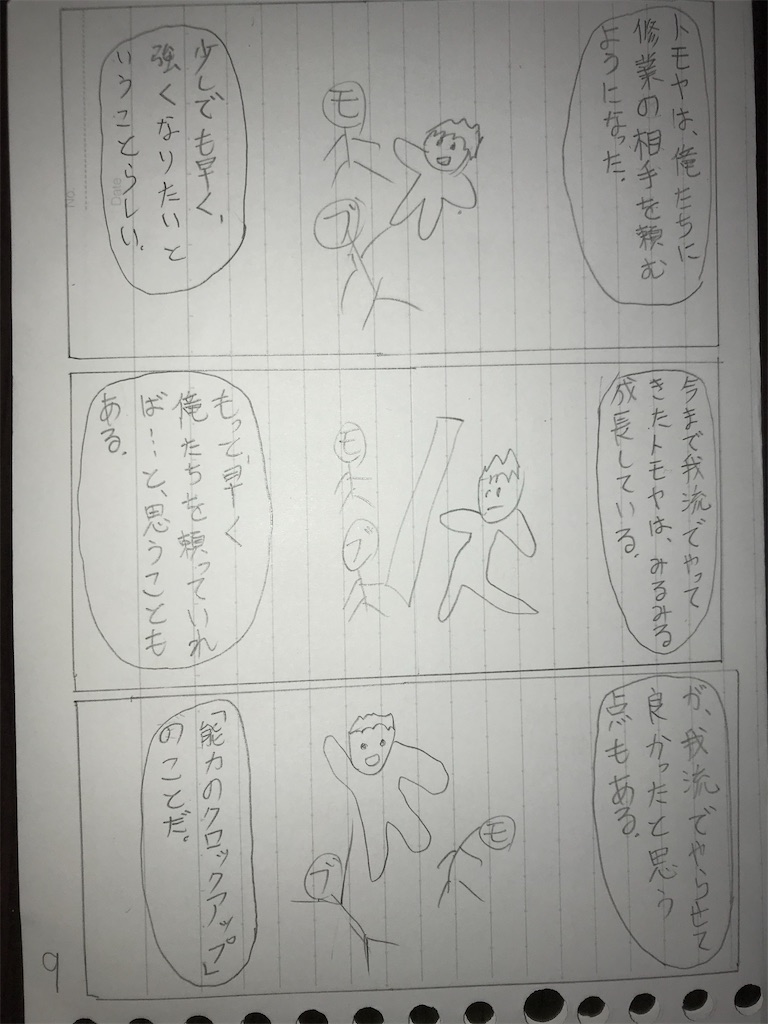 トモヤは、俺たちに
修業の相手を頼む
ようになった。
モ
ブ
少しでも早く、
強くなりたいと
いうことらしい。
今まで我流でやって
きたトモヤは、みるみる
成長している。
モ
ブ
もって、早く
俺たちを頼っていれ
ば…と、思うことも
ある。
が、我流でやらせて
良かったと思う
点もある。
モ
ブ
「能力のクロックアップ」
のことだ。
9
No.
Date